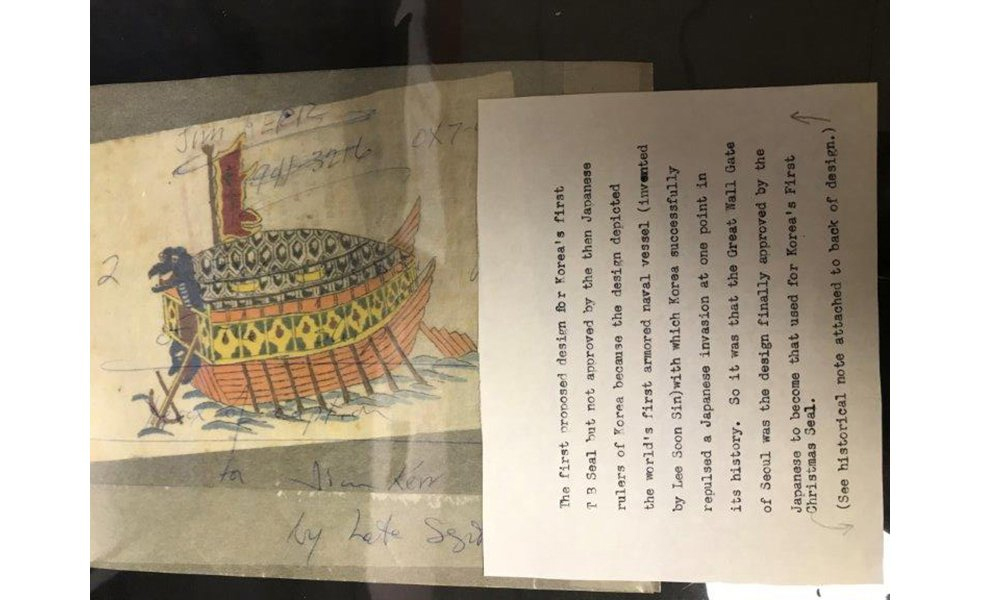 Jim KERR
2
to Jim Kerr
by Late
The first proposed design for Korea's first
T B Seal but not approved by the then Japanese
rulers of Korea because the design depicted
the world's first armored naval vessel (invented
by Lee Soon Sin)with which Korea successfully
repulsed a Japanese invasion at one point in
its history. So it was that the Great Wall Gate
of Seoul was the design finally approved by the
Japanese to become that used for Korea's First
Christmas Seal.
(See historical note attached to back of design.)